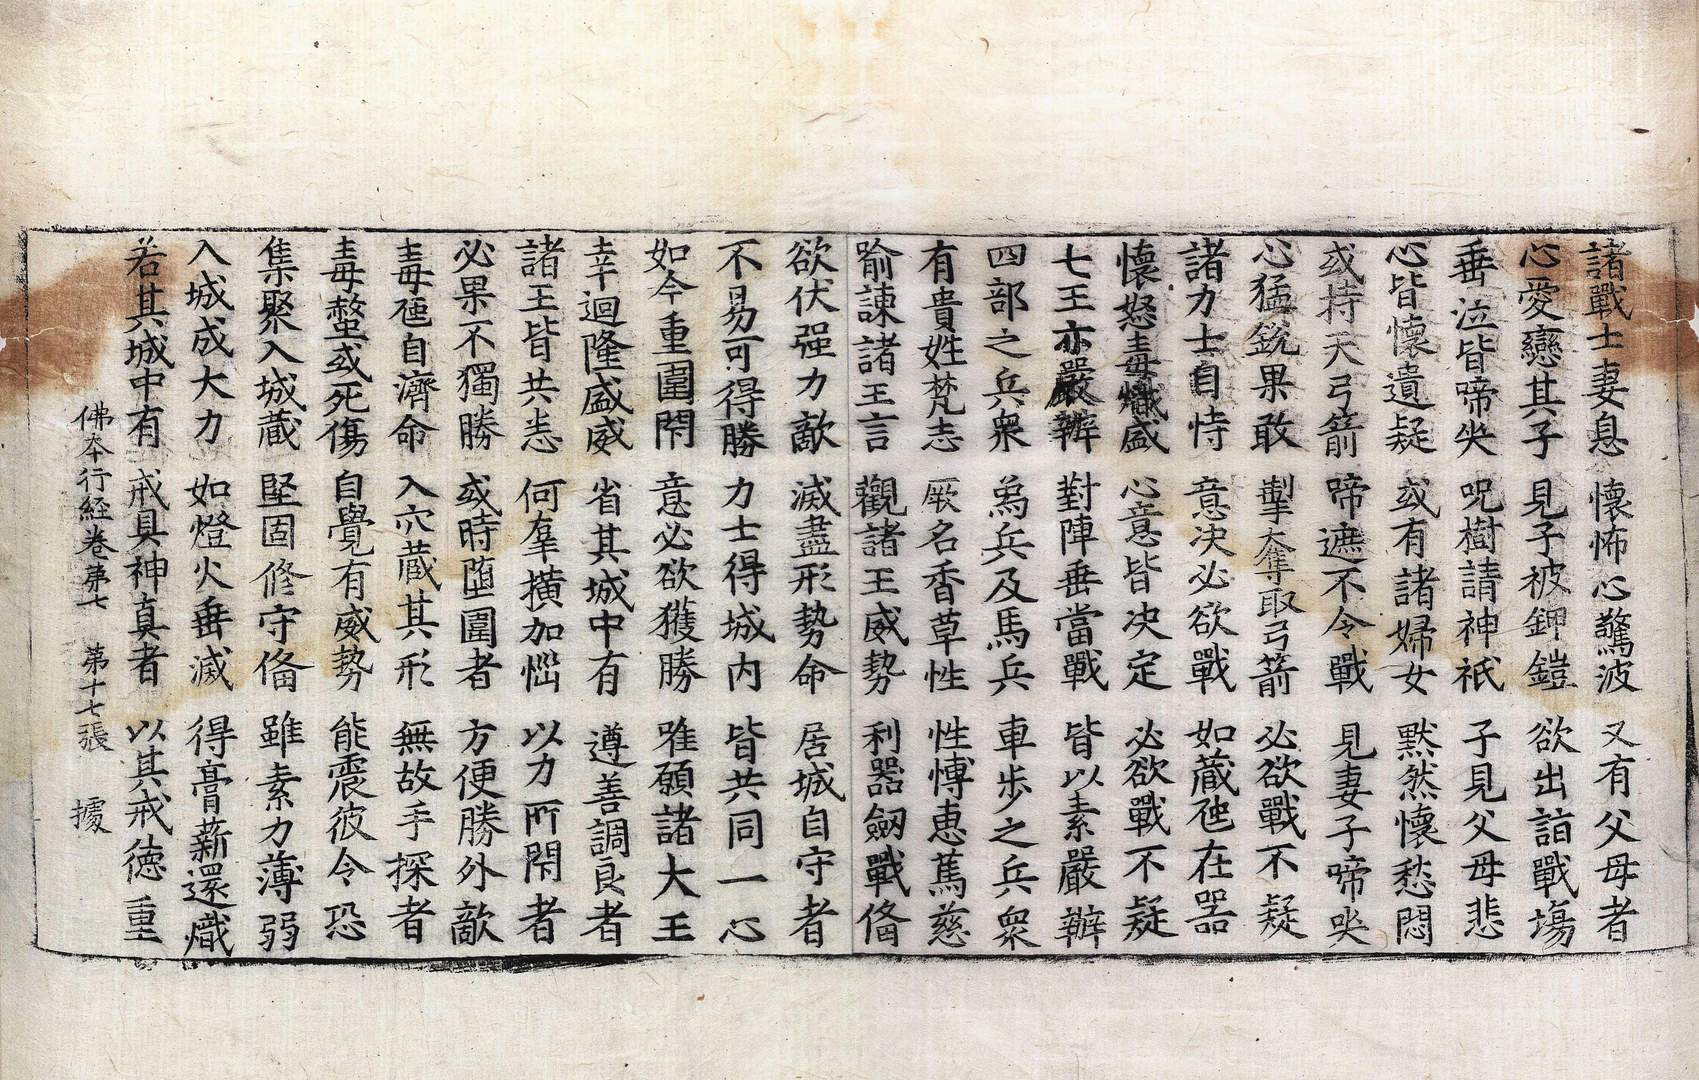 諸戰士妻息 懷怖心驚波 又有父母者
心愛戀其子 見子被鉀鎧 欲出詣戰場
垂泣皆啼哭 呪樹請神祇 子見父母悲
心皆懷遺疑 或有諸婦女 黙然懷愁悶
或持天弓箭 啼遮不令戰 見妻子啼哭
心猛銳果敢 掣奪取弓箭 必欲戰不疑
諸力士自恃 意决必欲戰 如蔵虵在器
懷怒毒熾盛 心意皆决定 必欲戰不疑
七王亦嚴辦 對陣垂當戰 皆以素嚴辦
四部之兵衆 爲兵及馬兵 車步之兵衆
有貴姓梵志 厥名香草性 性愽惠篤慈
喻諫諸王言 觀諸王威勢 利器劔戰俻
欲伏强力敵 滅盡形勢命 居城自守者
不易可得勝 力士得城内 皆共同一心
如今重圍閇 意必欲獲勝 唯願諸大王
幸迴隆盛威 省其城中有 遵善調良者
諸王皆共恚 何辜撗加惱 以力所閇者
必果不獨勝 或時墮圍者 方便勝外敵
毒虵自濟命 入穴蔵其形 無故手探者
毒螫或死傷 自覺有威勢 能震彼令恐
集聚入城蔵 堅固俢守俻 雖素力薄弱
入城成大力 如燈火垂滅 得膏薪還熾
若其城中有 戒具神真者 以其戒德重
佛本行經卷第七 第十七張 據